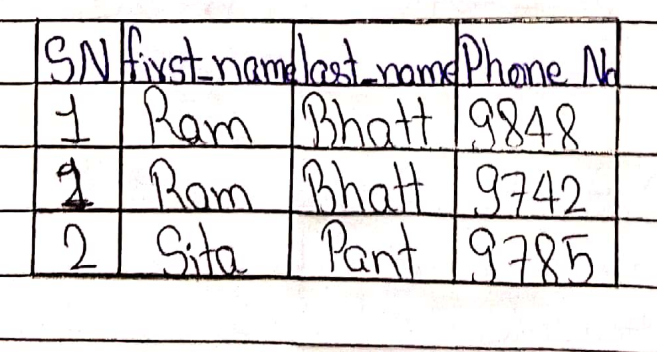 SN first_name last_name Phone No
1 Ram Bhatt 9848
1 Ram Bhatt 9742
2 Sita Pant 9785